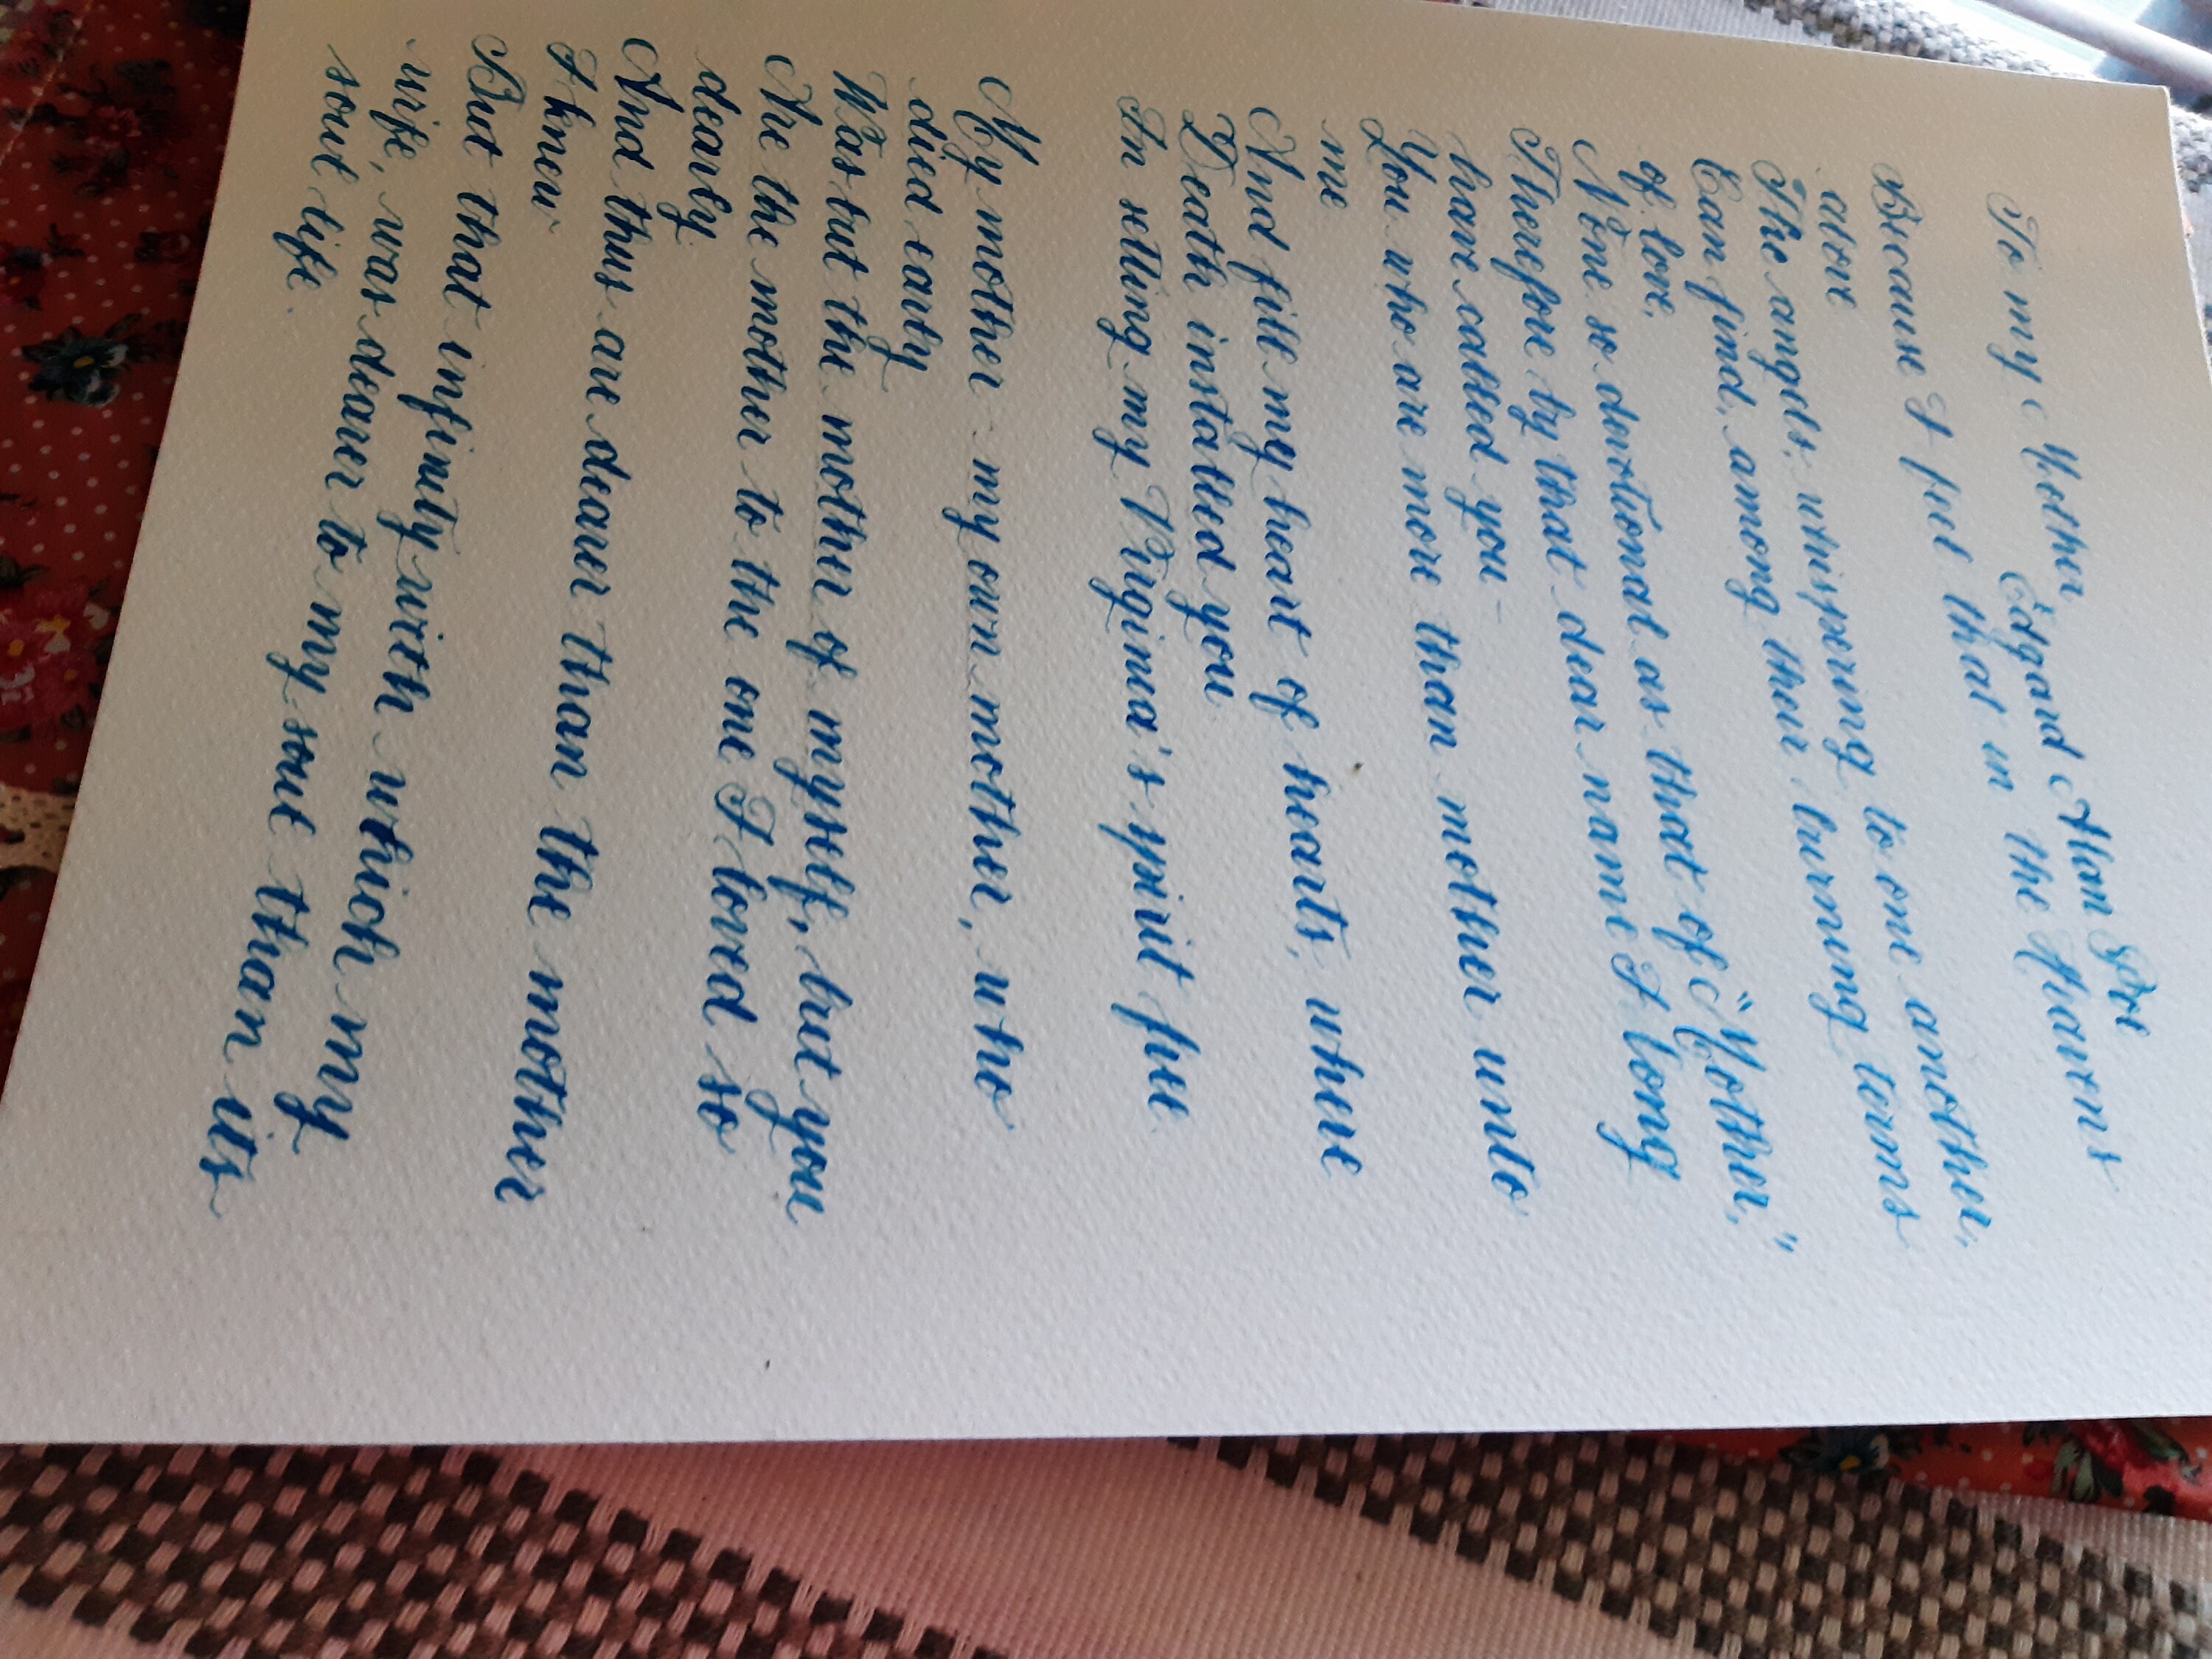 To my Mother
Edgard Allan Poe
Because I feel that in the Heavens
above
The angels, whispering to one another,
Can find, among their burning terms
of love,
None so devotional as that of "Mother,"
Therefore by that dear name I long
have called you -
You who are more than mother unto
me
And fill my heart of hearts, where
Death installed you
In setting my Virginia's spirit free
My mother - my own mother, who
died early
Was but the mother of myself, but you
Are the mother to the one I loved so
dearly
And thus are dearer than the mother
I knew
But that infinity with which my
wife, was dearer to my soul than its
soul life.